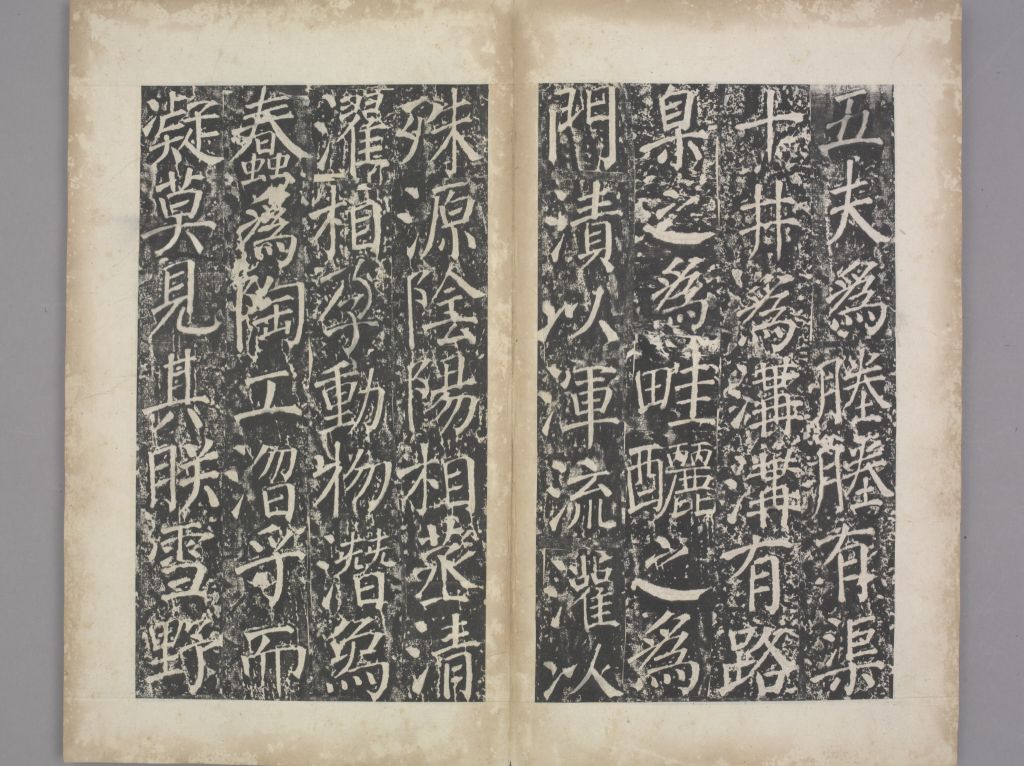 五夫爲塍塍有渠
十井爲溝溝有路
臬之爲畦釃之爲
門漬以渾流灌以
殊源陰陽相蒸清
濯相孕動物潛爲
蠢爲陶工乎而
凝莫見其朕雪野